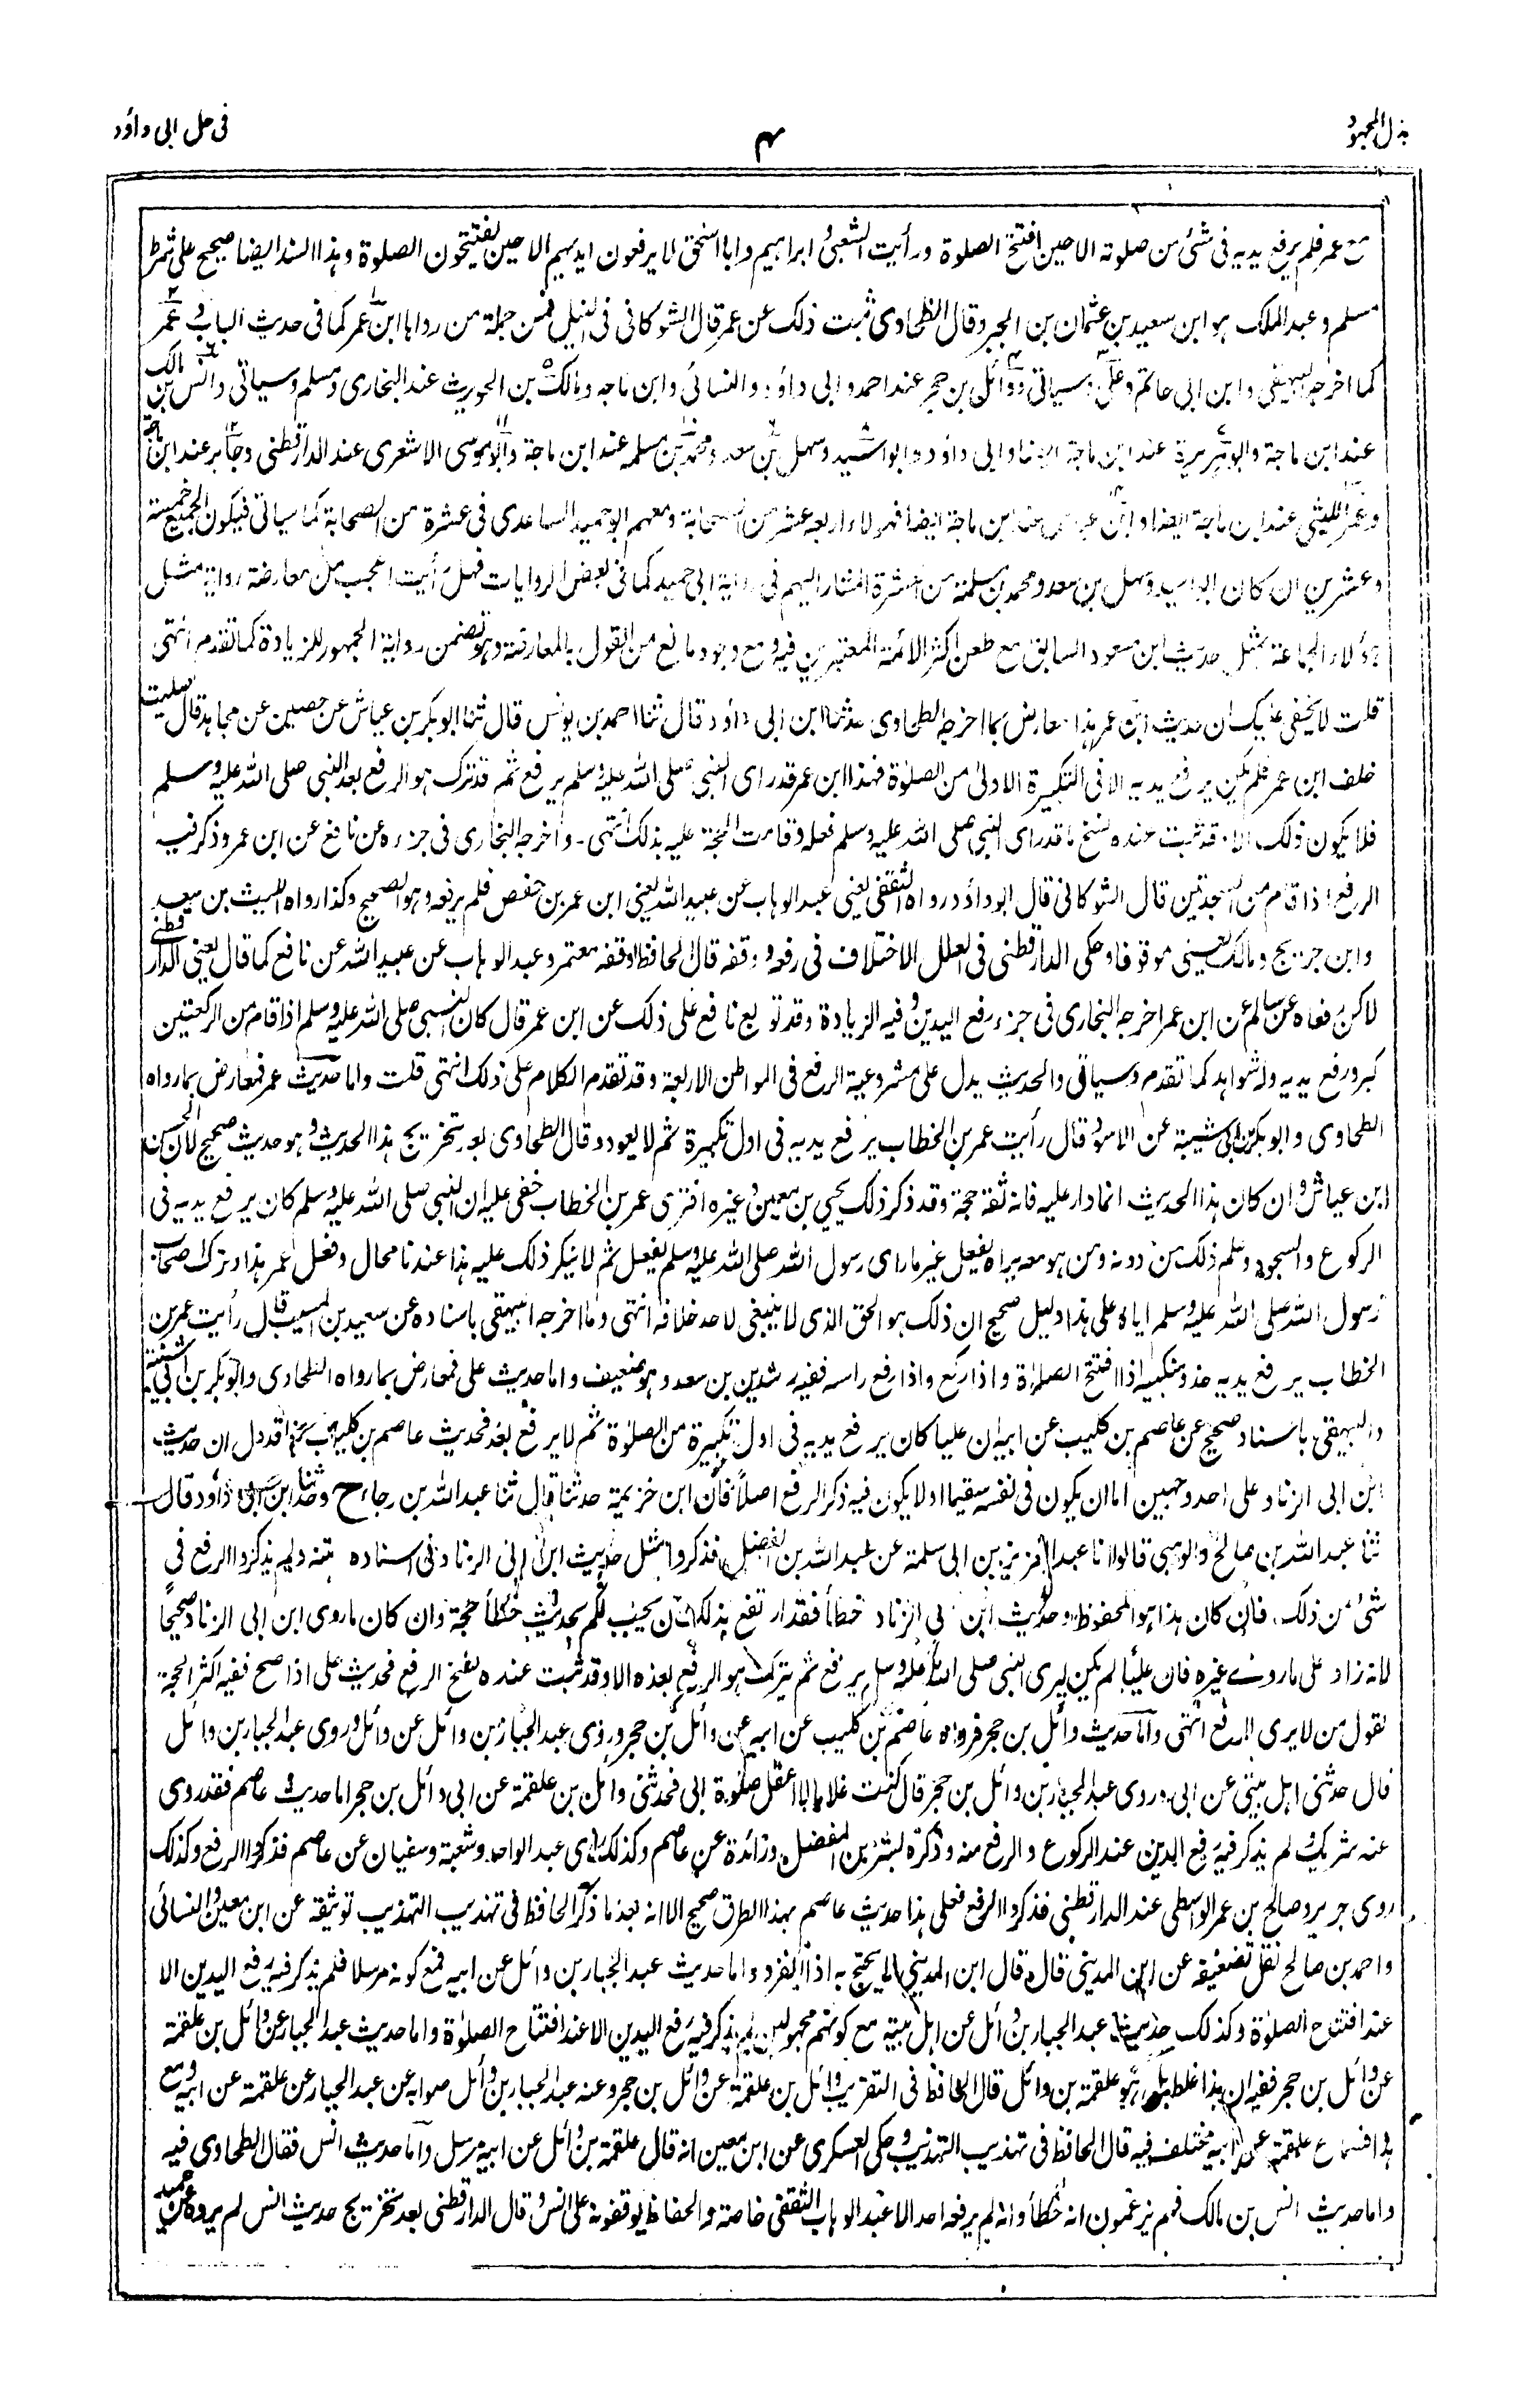 بذل المجهود
٤
فى حل ابى داؤد
مع عمر فلم يرفع يديه فى شئ من صلوته الا حين افتتح الصلوة ورأيت الشعبى و ابراهيم وابا اسحق لا يرفعون ايديهم الا حين يفتتحون الصلوة وهذا السند ايضا صحيح على شرط
مسلم وعبد الملك هو ابن سعيد بن عثمان بن ابجر وقال الطحاوى ثبت ذلك عن عمر قال الشوكانى فى النيل فمن جملة من رواها ابن عمر كما فى حديث الباب و عمر
كما اخرجه البيهقى وابن ابى حاتم وعلى سياتى ووائل بن حجر عند احمد وابى داؤد والنسائى وابن ماجه ومالك بن الحويرث عند البخارى ومسلم وسياتى وانس بن مالك
عند ابن ماجة وابو هريرة عند ابن ماجة ايضا وابى داؤد وابو اسيد وسهل بن سعد ومحمد بن مسلمه عند ابن ماجة وابو موسى الاشعرى عند الدارقطنى وجابر عند ابن ماجة
وعمر الليثى عند ابن ماجة ايضا وابن عباس عند ابن ماجة ايضا فهولاء اربعة عشر من الصحابة ومعهم ابو حميد الساعدى فى عشرة من الصحابة كما سياتى فيكون الجميع خمسة
وعشرين ان كان ابو اسيد وسهل بن سعد ومحمد بن مسلمة من العشرة المشار اليهم فى رواية ابى حميد كما فى بعض الروايات فهل رأيت اعجب من معارضة رواية مثل
هؤلاء الجماعة بمثل حديث ابن مسعود السابق مع طعن اكثر الائمة المعتبرين فيه ومع وجود مانع من القول بالمعارضة وهو تضمن رواية الجمهور للزيادة كما تقدم انتهى
قلت لا يخفى عليك ان حديث ابن عمر هذا معارض بما اخرجه الطحاوى حدثنا ابن ابى داؤد قال ثنا احمد بن يونس قال ثنا ابوبكر بن عياش عن حصين عن مجاهد قال صليت
خلف ابن عمر فلم يكن يرفع يديه الا فى التكبيرة الاولى من الصلوة فهذا ابن عمر قد راى النبى صلى الله عليه وسلم يرفع ثم قد ترك هو الرفع بعد النبى صلى الله عليه وسلم
فلا يكون ذلك الا وقد ثبت عنده نسخ ما قد راى النبى صلى الله عليه وسلم فعله وقامت الحجة عليه بذلك انتهى۔ واخرجه البخارى فى جزءه عن نافع عن ابن عمر وذكر فيه
الرفع اذا قام من السجدتين قال الشوكانى قال ابوداؤد رواه الثقفى يعنى عبد الوهاب عن عبيد الله يعنى ابن عمر بن حفص فلم يرفعه وهو الصحيح وكذا رواه الليث بن سعد
وابن جريج ومالك يعنى موقوفا وحكى الدارقطنى فى العلل الاختلاف فى رفعه ووقفه قال الحافظ اوقفه معتمر وعبد الوهاب عن عبيد الله عن نافع كما قال يعنى الدارقطنى
لاكن رفعاه عن سالم عن ابن عمر اخرجه البخارى فى جزء رفع اليدين وفيه الزيادة وقد توبع نافع على ذلك عن ابن عمر قال كان النبى صلى الله عليه وسلم اذا قام من الركعتين
كبر ورفع يديه وله شواهد كما تقدم وسياتى والحديث يدل على مشروعية الرفع فى المواطن الاربعة وقد تقدم الكلام على ذلك انتهى قلت واما حديث عمر فمعارض بما رواه
الطحاوى وابوبكر بن ابى شيبة عن الاسود قال رأيت عمر بن الخطاب يرفع يديه فى اول تكبيرة ثم لا يعود وقال الطحاوى بعد تخريج هذا الحديث وهو حديث صحيح لان الحسن
ابن عياش وان كان هذا الحديث انما دار عليه فانه ثقة حجة وقد ذكر ذلك يحيى بن معين وغيره افترى عمر بن الخطاب خفى عليه ان النبى صلى الله عليه وسلم كان يرفع يديه فى
الركوع والسجود وعلم ذلك من دونه ومن هو معه يراه يفعل غير ما راى رسول الله صلى الله عليه وسلم يفعل ثم لا ينكر ذلك عليه هذا عندنا محال وفعل عمر هذا وترك اصحاب
رسول الله صلى الله عليه وسلم اياه على هذا دليل صحيح ان ذلك هو الحق الذى لا ينبغى لاحد خلافه انتهى وما اخرجه البيهقى باسناده عن سعيد بن المسيب قال رأيت عمر بن
الخطاب يرفع يديه حذو منكبيه اذا افتتح الصلوة واذا ركع واذا رفع راسه ففيه رشدين بن سعد وهو ضعيف واما حديث على فمعارض بما رواه الطحاوى وابوبكر بن ابى شيبة
والبيهقى باسناد صحيح عن عاصم بن كليب عن ابيه ان عليا كان يرفع يديه فى اول تكبيرة من الصلوة ثم لا يرفع بعد فحديث عاصم بن كليب هذا قد دل ان حديث
ابن ابى الزناد على احد وجهين اما ان يكون فى نفسه سقيما او لا يكون فيه ذكر الرفع اصلاً فان ابن خزيمة حدثنا قال ثنا عبد الله بن رجاء ح وحدثنا ابن ابى داؤد قال
ثنا عبد الله بن صالح والوهبى قالوا انا عبد العزيز بن ابى سلمة عن عبد الله بن الفضل فذكروا مثل حديث ابن ابى الزناد فى اسناده ومتنه ولم يذكروا الرفع فى
شئ من ذلك فان كان هذا هو المحفوظ وحديث ابن ابى الزناد خطأ فقد ارتفع بذلك ان يجب لكم بحديث خطأ حجة وان كان ما روى ابن ابى الزناد صحيحاً
لانه زاد على ما روى غيره فان علياً لم يكن ليرى النبى صلى الله عليه وسلم يرفع ثم يترك هو الرفع بعده الا وقد ثبت عنده نسخ الرفع فحديث على اذا صح ففيه اكثر الحجة
لقول من لا يرى الرفع انتهى واما حديث وائل بن حجر فرواه عاصم بن كليب عن ابيه عن وائل بن حجر وروى عبد الجبار بن وائل عن وائل وروى عبد الجبار بن وائل
قال حدثنى اهل بيتى عن ابى وروى عبد الجبار بن وائل بن حجر قال كنت غلاما لا اعقل صلوة ابى فحدثنى وائل بن علقمة عن ابى وائل بن حجر اما حديث عاصم فقد روى
عنه شريك لم يذكر فيه رفع اليدين عند الركوع والرفع منه وذكره بشر بن المفضل وزائدة عن عاصم وكذلك روى عبد الواحد وشعبة وسفيان عن عاصم فذكروا الرفع وكذلك
روى جرير وصالح بن عمر الواسطى عند الدارقطنى فذكروا الرفع فعلى هذا حديث عاصم بهذا الطرق صحيح الا انه بعد ما ذكر الحافظ فى تهذيب التهذيب توثيقه عن ابن معين والنسائى
واحمد بن صالح نقل تضعيفه عن ابن المدينى قال وقال ابن المدينى لا يحتج به اذا انفرد واما حديث عبد الجبار بن وائل عن ابيه فمع كونه مرسلا فلم يذكر فيه رفع اليدين الا
عند افتتاح الصلوة وكذلك حديث عبد الجبار بن وائل عن اهل بيته مع كونهم مجهولين لم يذكر فيه رفع اليدين الا عند افتتاح الصلوة واما حديث عبد الجبار عن وائل بن علقمة
عن وائل بن حجر ففيه ان هذا غلط بل هو علقمة بن وائل قال الحافظ فى التقريب وائل بن علقمة عن وائل بن حجر وعنه عبد الجبار بن وائل صوابه عن عبد الجبار عن علقمة عن ابيه ومع
هذا فسماع علقمة عن ابيه مختلف فيه قال الحافظ فى تهذيب التهذيب وحكى العسكرى عن ابن معين انه قال علقمة بن وائل عن ابيه مرسل واما حديث انس فقال الطحاوى فيه
واما حديث انس بن مالك فهم يزعمون انه خطأ وانه لم يرفعه احد الا عبد الوهاب الثقفى خاصة والحفاظ يوقفونه على انس وقال الدارقطنى بعد تخريج حديث انس لم يروه عن حميد